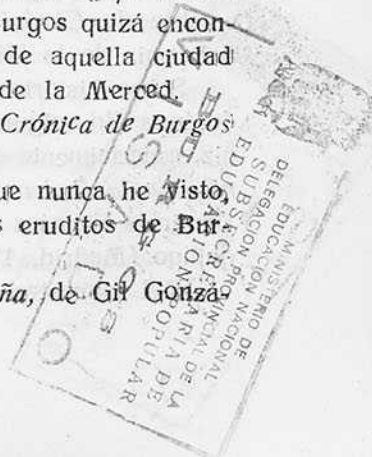 urgos quizá encon-
de aquella ciudad
de la Merced.
Crónica de Burgos
ue nunca he visto,
s eruditos de Bur-
ña, de Gil Gonzá-
MINISTERIO DE
EDUCACIÓN NACIONAL
DELEGACIÓN PROVINCIAL DE LA
SUBSECRETARIA DE
EDUCACION POPULAR
BURGOS